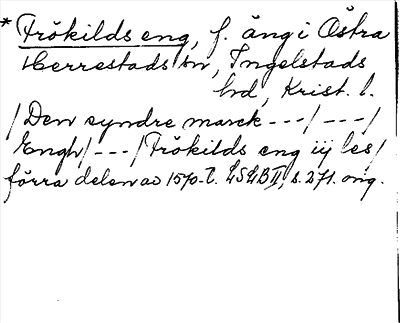 * Frökilds eng, f. äng i Östra
Herrestads sn, Ingelstads
hd, Krist. l.
/Den syndre marck ---/---/
Engh/---/Frökilds eng iij les/
förra delen av 1570-t. LSLB II, s. 271. orig.